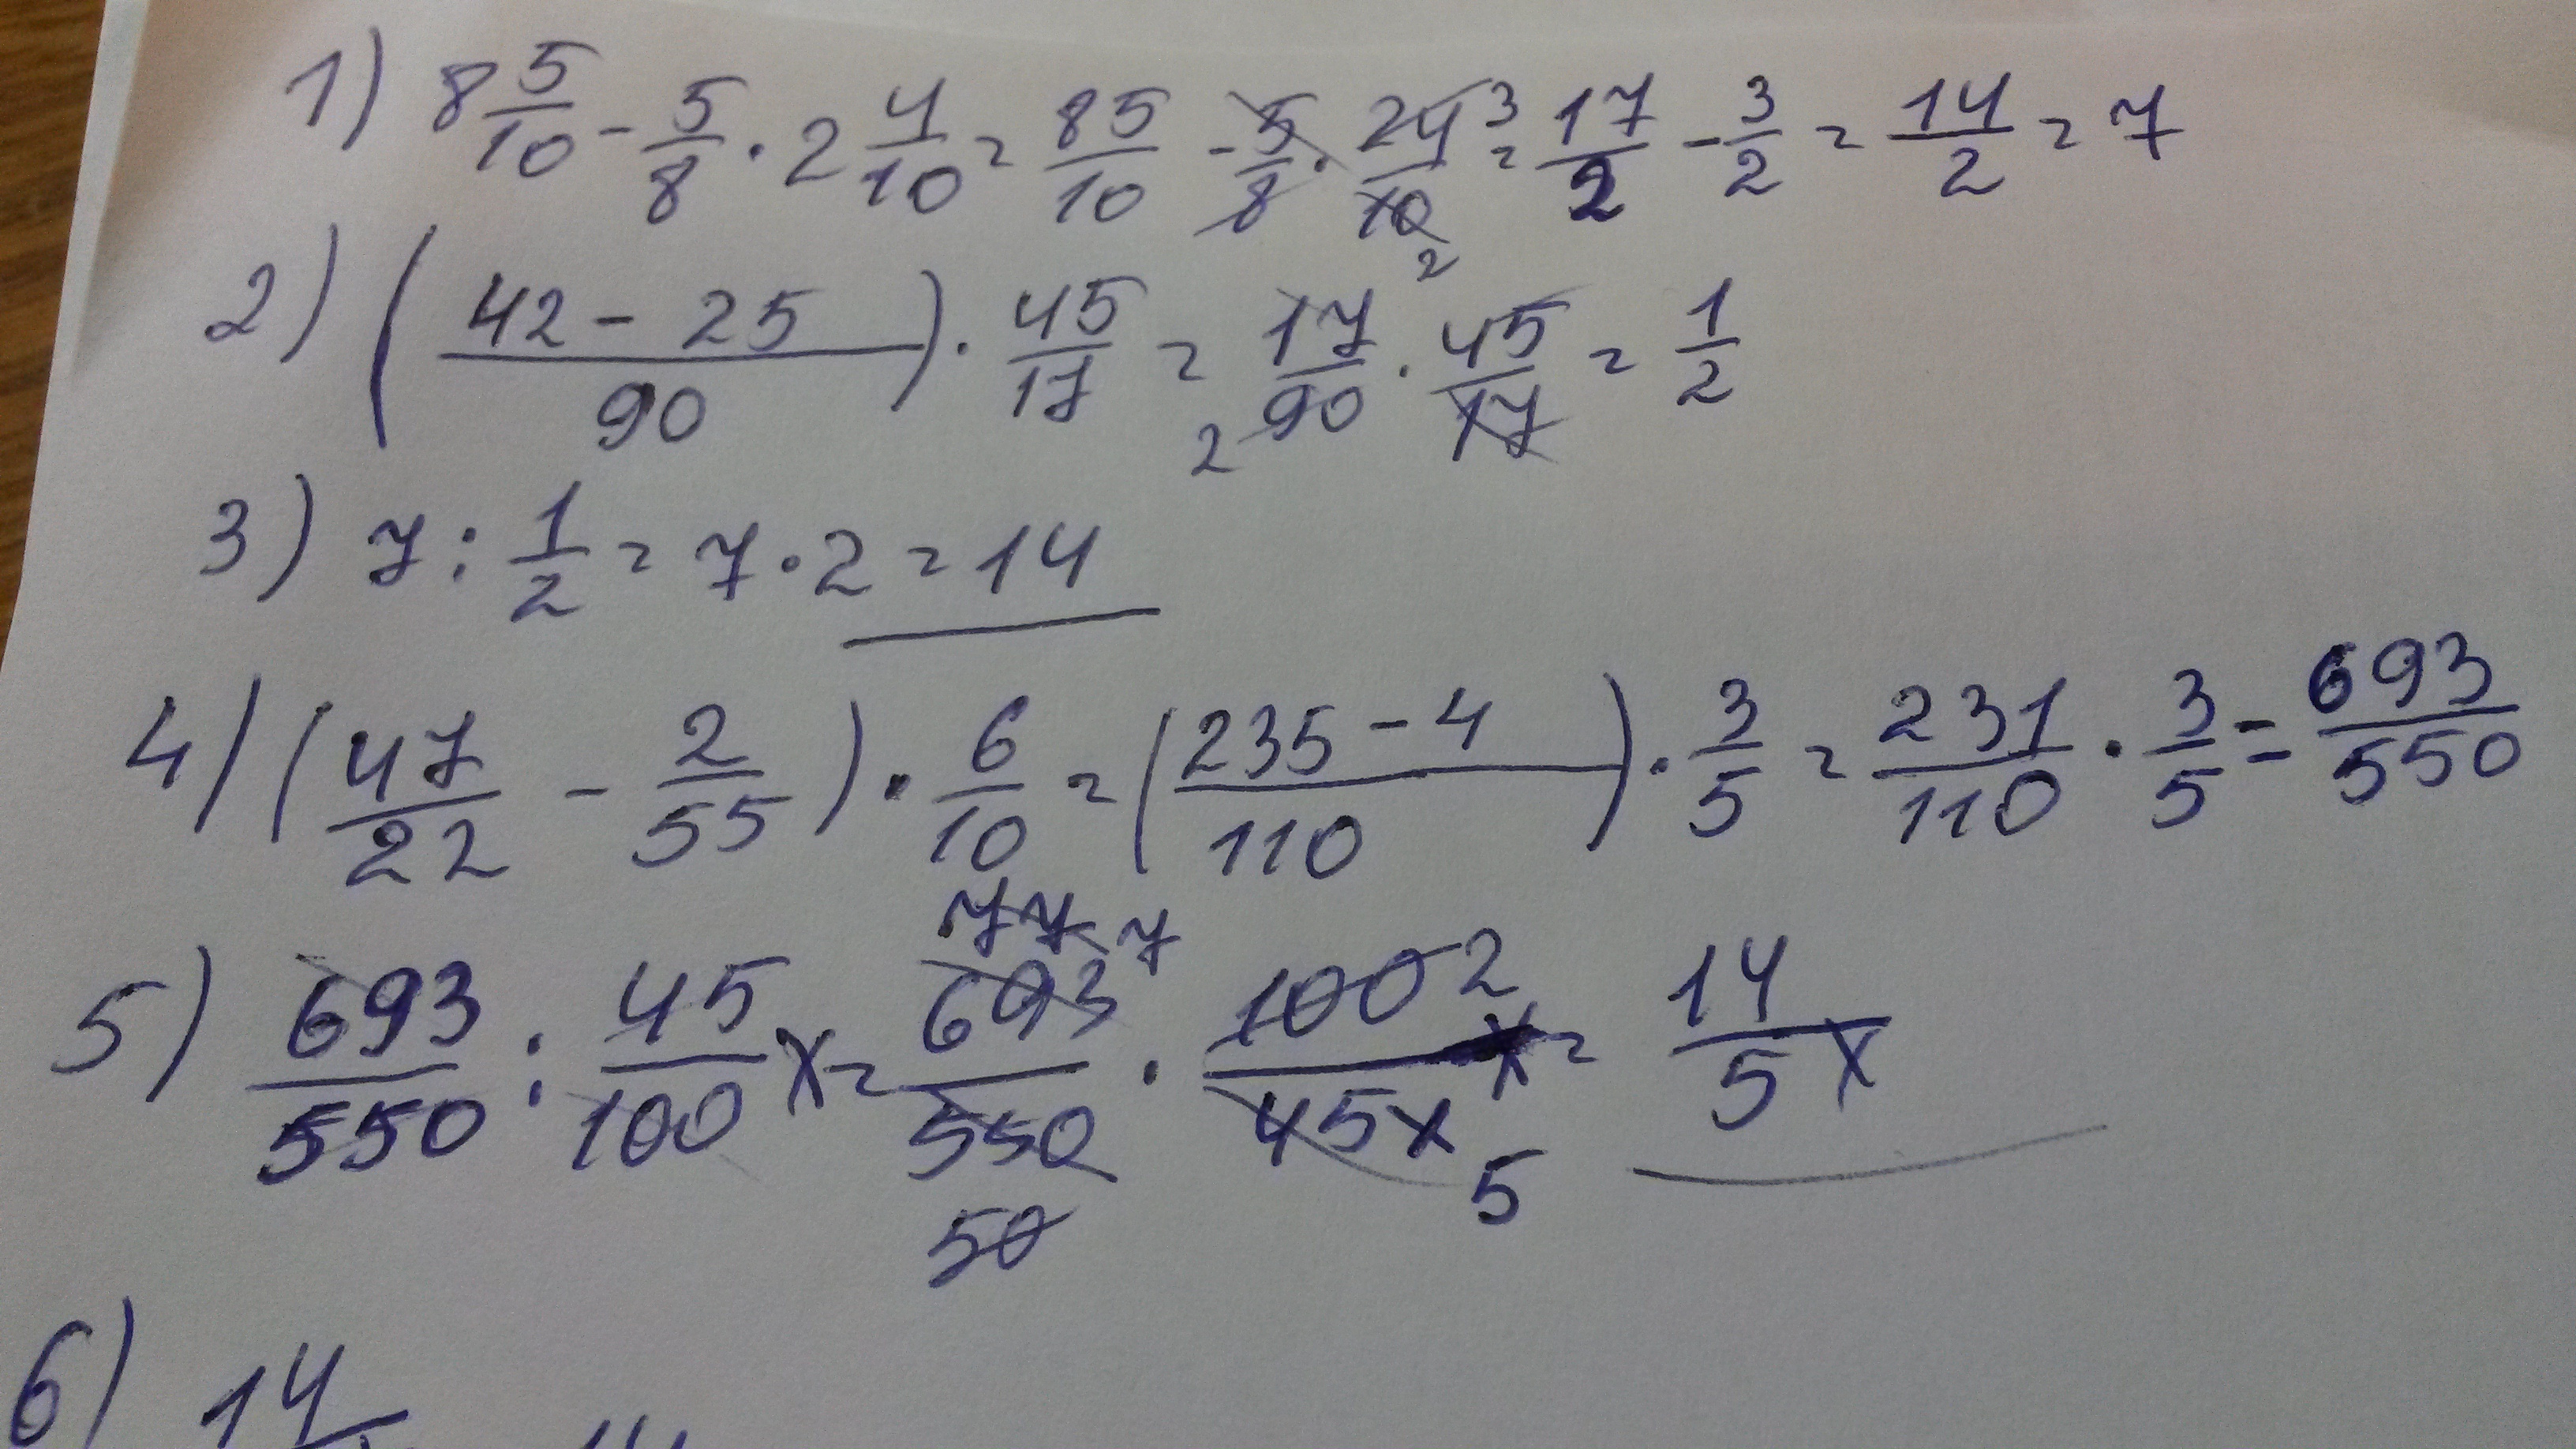 1) 8 5/10 - 5/8 · 2 4/10 = 85/10 - 5/8 · 24/10 3 2 = 17/2 - 3/2 = 14/2 = 7
2) (42 - 25 / 90) · 45/17 = 17/90 2 · 45/17 = 1/2
3) 7 : 1/2 = 7 · 2 = 14
4) (47/22 - 2/55) · 6/10 = (235 - 4 / 110) · 3/5 = 231/110 · 3/5 = 693/550
5) 693/550 : 45/100 x = 77 7 693/550 50 · 100 2/45x 5 = 14/5x
6) 14